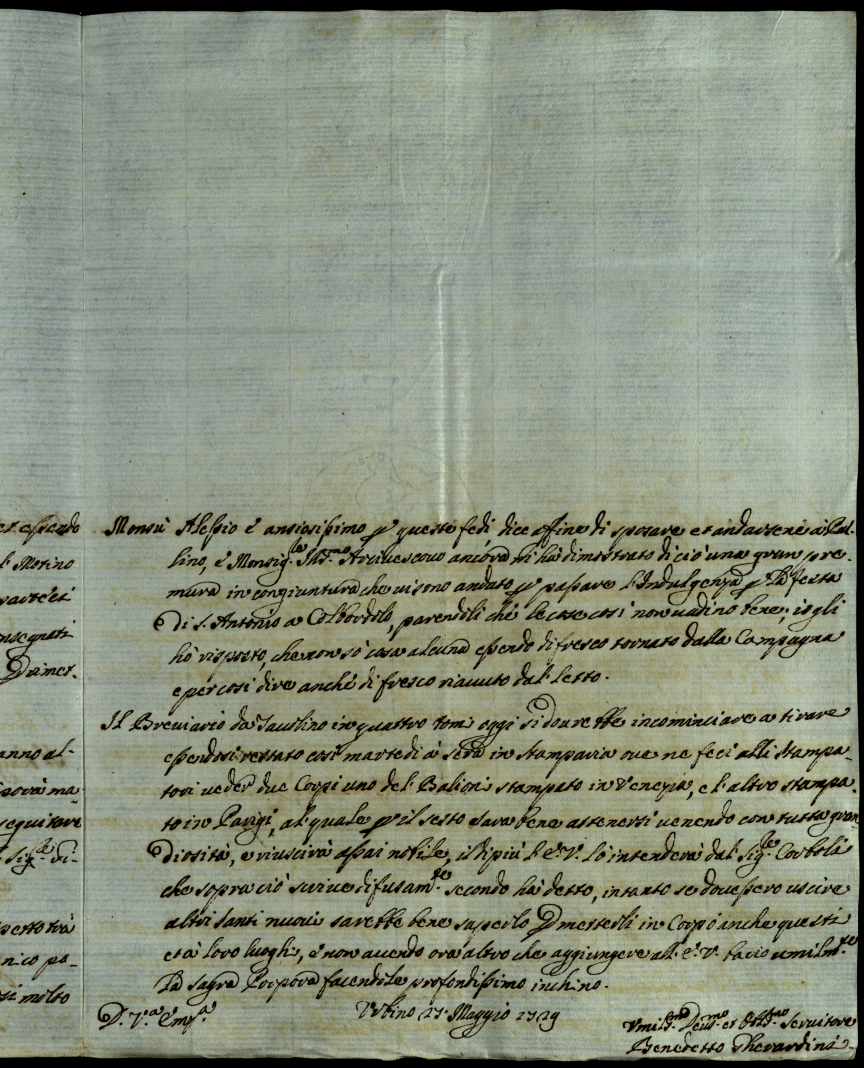 et essendo
l Morino
nsegnati
Dà mer-
anno al-
seguitare
Sig.ri di-
petto trà
nico pa-
molto
Monsù Alessio è ansiosissimo p queste fedi dice affine di sposare et andarsene à Col-
lino, e Monsig.re Ill.mo Arcivescovo ancora mi hà dimostrato di ciò una gran pre-
mura in congiuntura che vi sono andato p passare l'Indulgenza p la festa
di S. Antonio a Colbordolo, parendoli che le cose così non vadino bene, io gli
hò risposto, che non sò cosa alcuna essendo di fresco tornato dalla Campagna
e per così dire anche di fresco riavuto dal letto.
Il Breviario da Taulino in quattro tomi oggi si dourebbe incominciare a tirare
essendosi restato così martedì à sera in stamparia ove ne feci alli stampa-
tori veder due Corpi uno del Balioni stampato in Venezia, e l'altro stampa-
to in Parigi, al quale p il sesto sarà bene attenersi venendo con tutta gran
diosità, e riuscirà assai nobile, il di più l'E. V. lo intenderà dal Sig.re Corbolà
che sopra ciò scrive difusam.te secondo hà detto, intanto se dovessero uscire
altri santi nuovi sarebbe bene saperlo p metterli in Corpo anche questi
et à loro luoghi, e non avendo ora altro che aggiungere all'E. V. bacio umilm.te
la sagra Porpora facendole profondissimo inchino.
D. V.a Em.a Urbino 23 Maggio 1729
Umiliss.mo Dev.mo et Obb.mo Servitore
Benedetto Gherardini